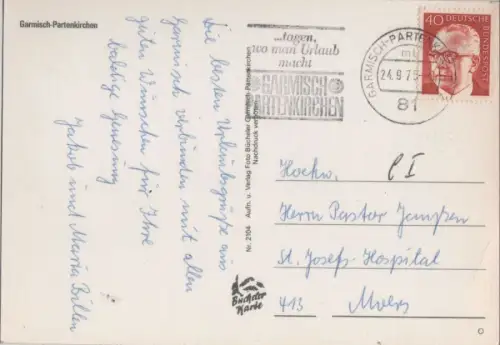 Garmisch-Partenkirchen
Die besten Urlaubsgrüße aus
Garmisch verbinden mit allen
guten Wünschen für Ihre
baldige Genesung
Jakob und Maria
Nr. 2184 Aufn. u. Verlag Foto Bücheler Garmisch-Partenkirchen
Nachdruck verboten
Bücheler
Karte
...tagen,
wo man Urlaub
macht
GARMISCH
PARTENKIRCHEN
GARMISCH-PARTENK
24.9.75
81
40 DEUTSCHE
BUNDESPOST
CI
Hochw.
Herrn Pastor Janßen
St. Josefs-Hospital
413 Moers